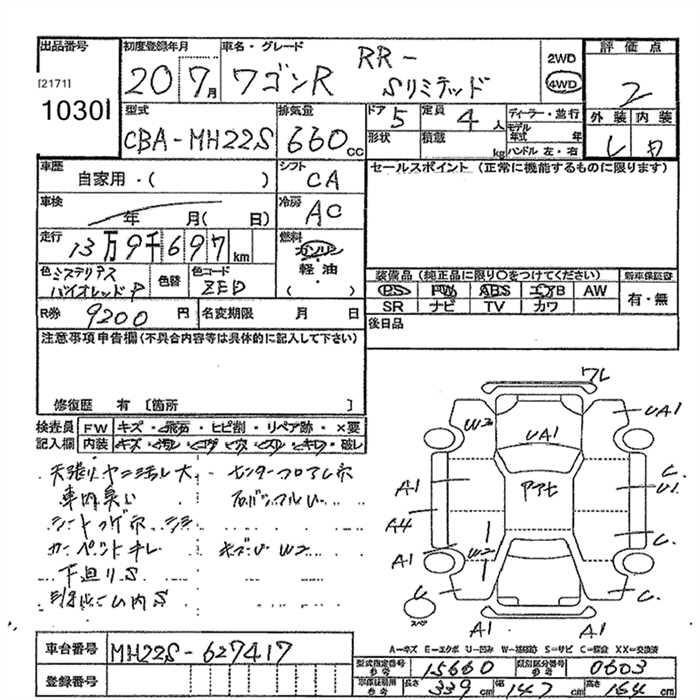 出品番号 初度登録年月 車名・グレード 2WD 評価点
[2171] 20 7月 ワゴンR RR- Sリミテッド 4WD 2
10301 型式 排気量 ドア 定員 ディーラー・並行 外装 内装
CBA-MH22S 660cc 5 4人 モデル年式 年
形状 積載 kg ハンドル 左・右
車歴 シフト セールスポイント(正常に機能するものに限ります)
自家用・( ) CA
車検 冷房
年 月( 日) AC
走行 13万9千697km 燃料 ガソリン
軽油
色 ミステリアスバイオレットP 色替 色コード ZED ( ・ ) 装備品(純正品に限り○をつけてください) 新車保証書
PS PW ABS エアB AW 有・無
SR ナビ TV カワ
R券 9200円 名変期限 月 日 後日品
注意事項申告欄(不具合内容等は具体的に記入して下さい)
修復歴 有 〔箇所 〕
検査員 FW キズ・飛石・ヒビ割・リペア跡・×要
記入欄 内装 キズ・ヨゴレ・コゲ・穴・スレ・キレ・破レ
天張りヤニヨゴレ大
車内臭い
シートコゲ穴
カーペットキレ キズ・U W2
下廻りS
ワレ
W2 UA1 UA1
A1 C
A4 U1
A1 W2 C
C C
スペア A1 A1
A=キズ E=エクボ U=凹み W=補修跡 S=サビ C=腐食 XX=交換済
車台番号 MH22S-627417 型式指定番号 15660 類別区分番号 0603
登録番号 長さ 339 幅 147 高さ 164cm